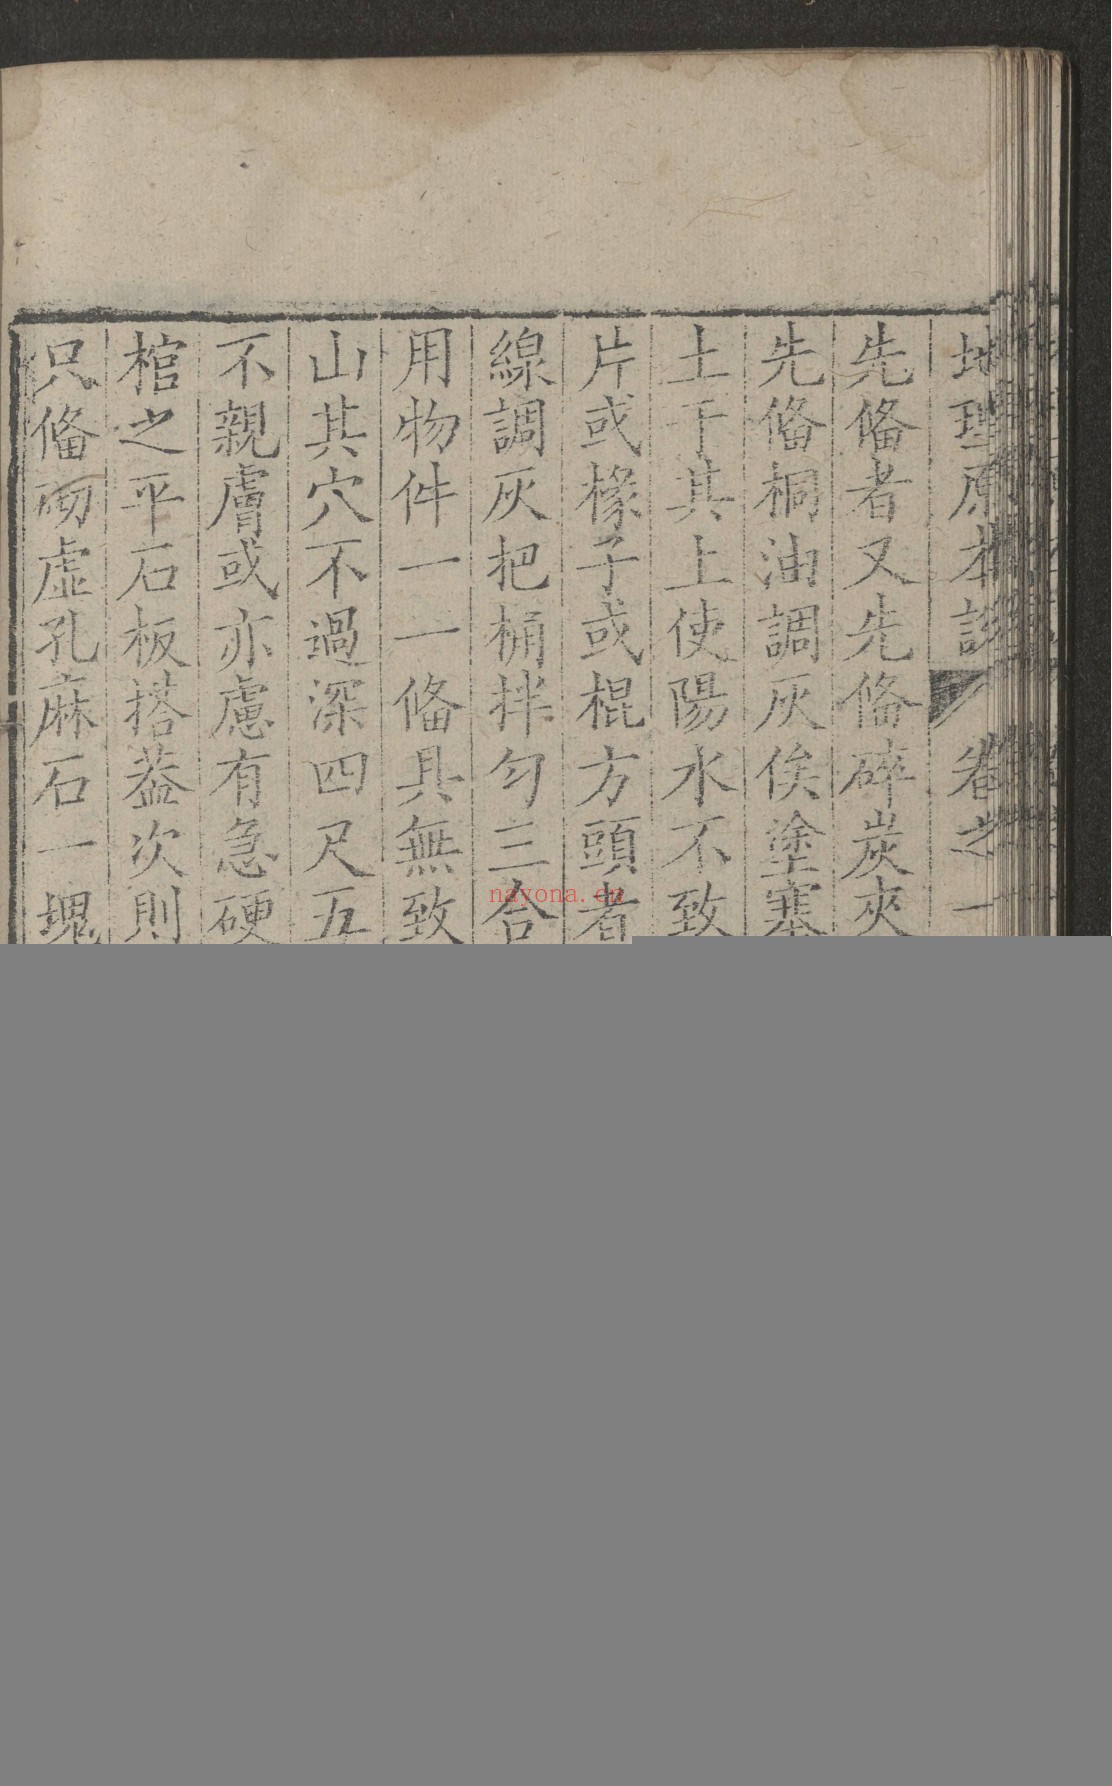 地理原本說 卷之一
先俻者又先俻碎炭夾
先俻桐油調灰俟塗塞
土于其上使陽水不致
片或椽子或棍方頭者
線調灰把桶拌勻三合
用物件一一俻具無致
山其穴不過深四尺五
不親膚或亦慮有急硬
棺之平石板搭葢次則
只俻砌虛孔麻石一塊
nayona.cn